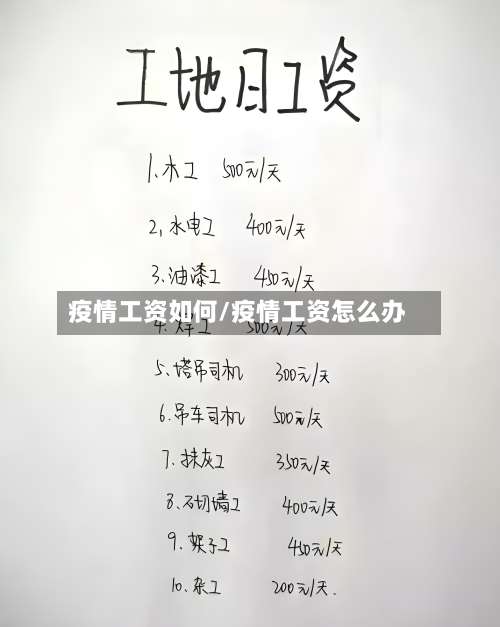 工地日工资
1.木工 500元/天
2,水电工 400元/天
3.油漆工 450元/天
疫情工资如何/疫情工资怎么办
4.焊工 500元/天
5、塔吊司机 300元/天
6.吊车司机 500元/天
7.抹灰工 350元/天
8、砌墙工 400元/天
9.架子工 450元/天
10.杂工 200元/天.